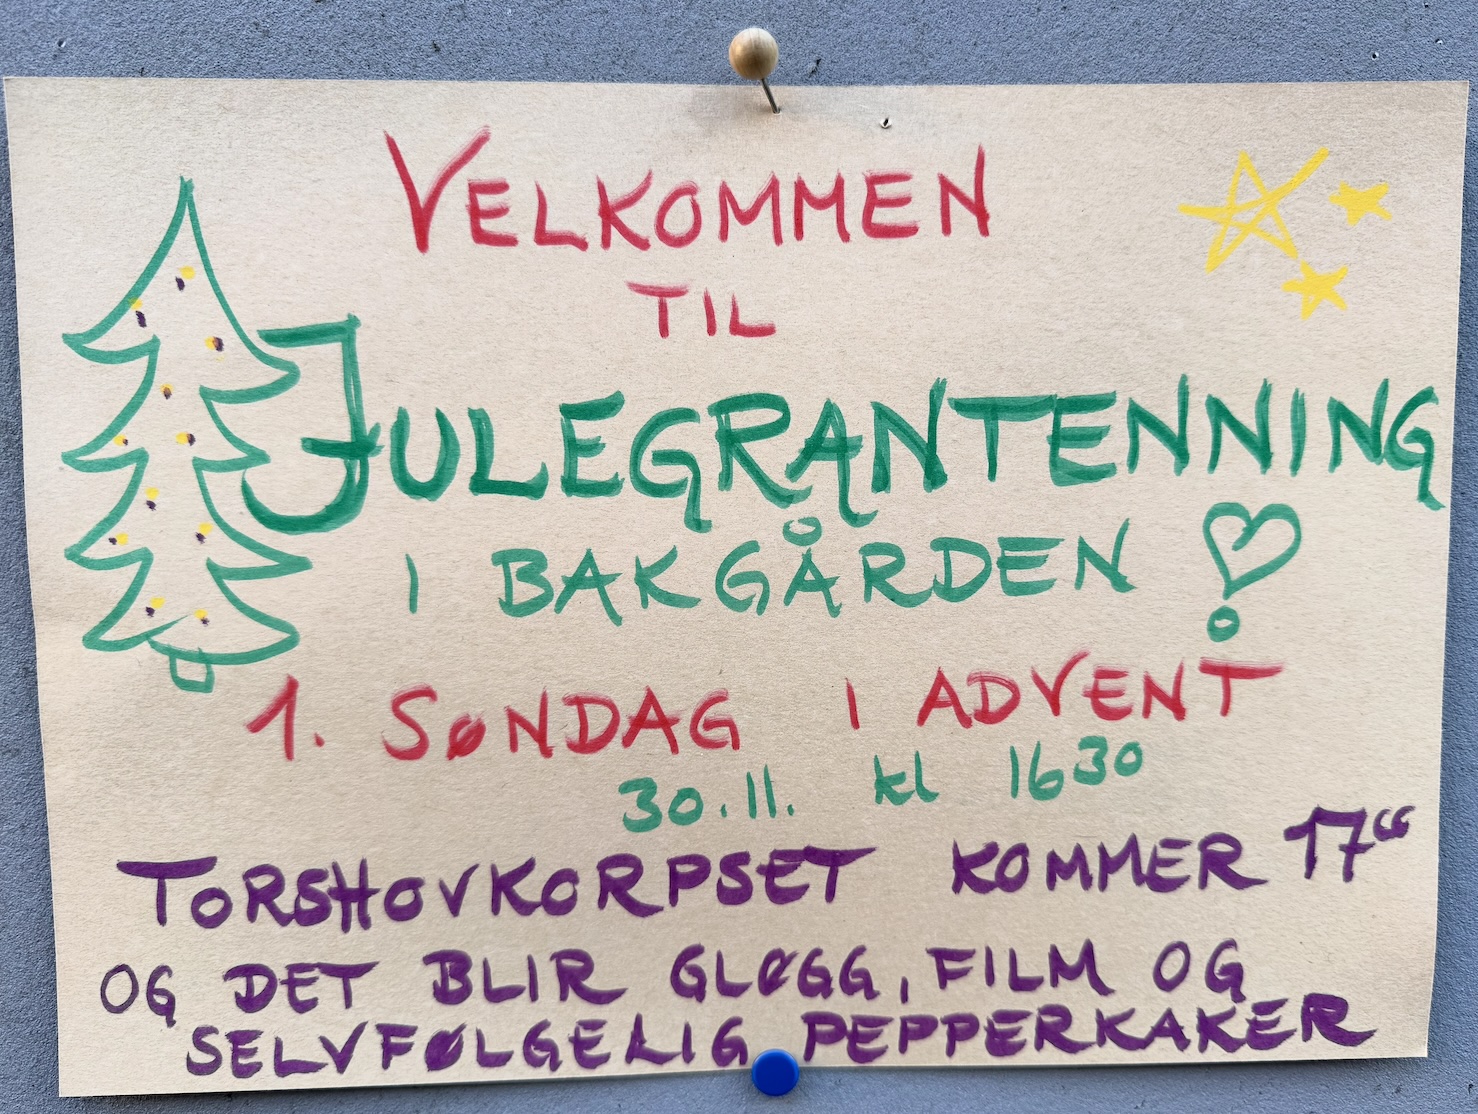 VELKOMMEN
TIL
JULEGRANTENNING
I BAKGÅRDEN !
1. SØNDAG I ADVENT
30.11. kl 16³⁰
TORSHOVKORPSET KOMMER 17⁰⁰
OG DET BLIR GLØGG, FILM OG
SELVFØLGELIG PEPPERKAKER